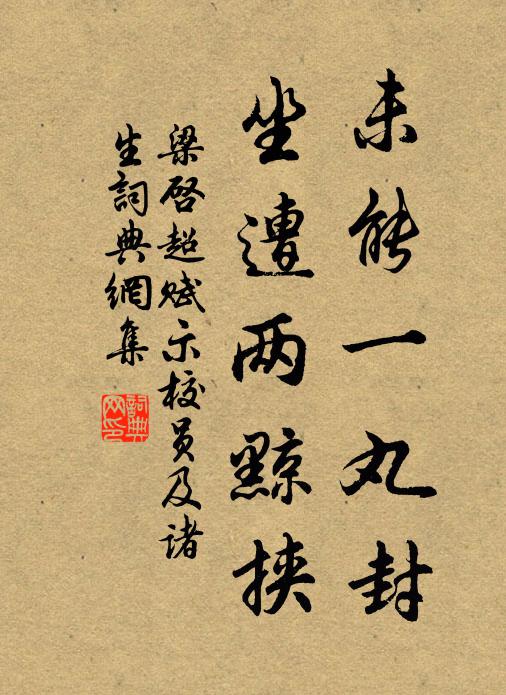 未能一丸封
坐遭两黥挟
梁启超赋示校员及诸
生詞典網集
詞典网印